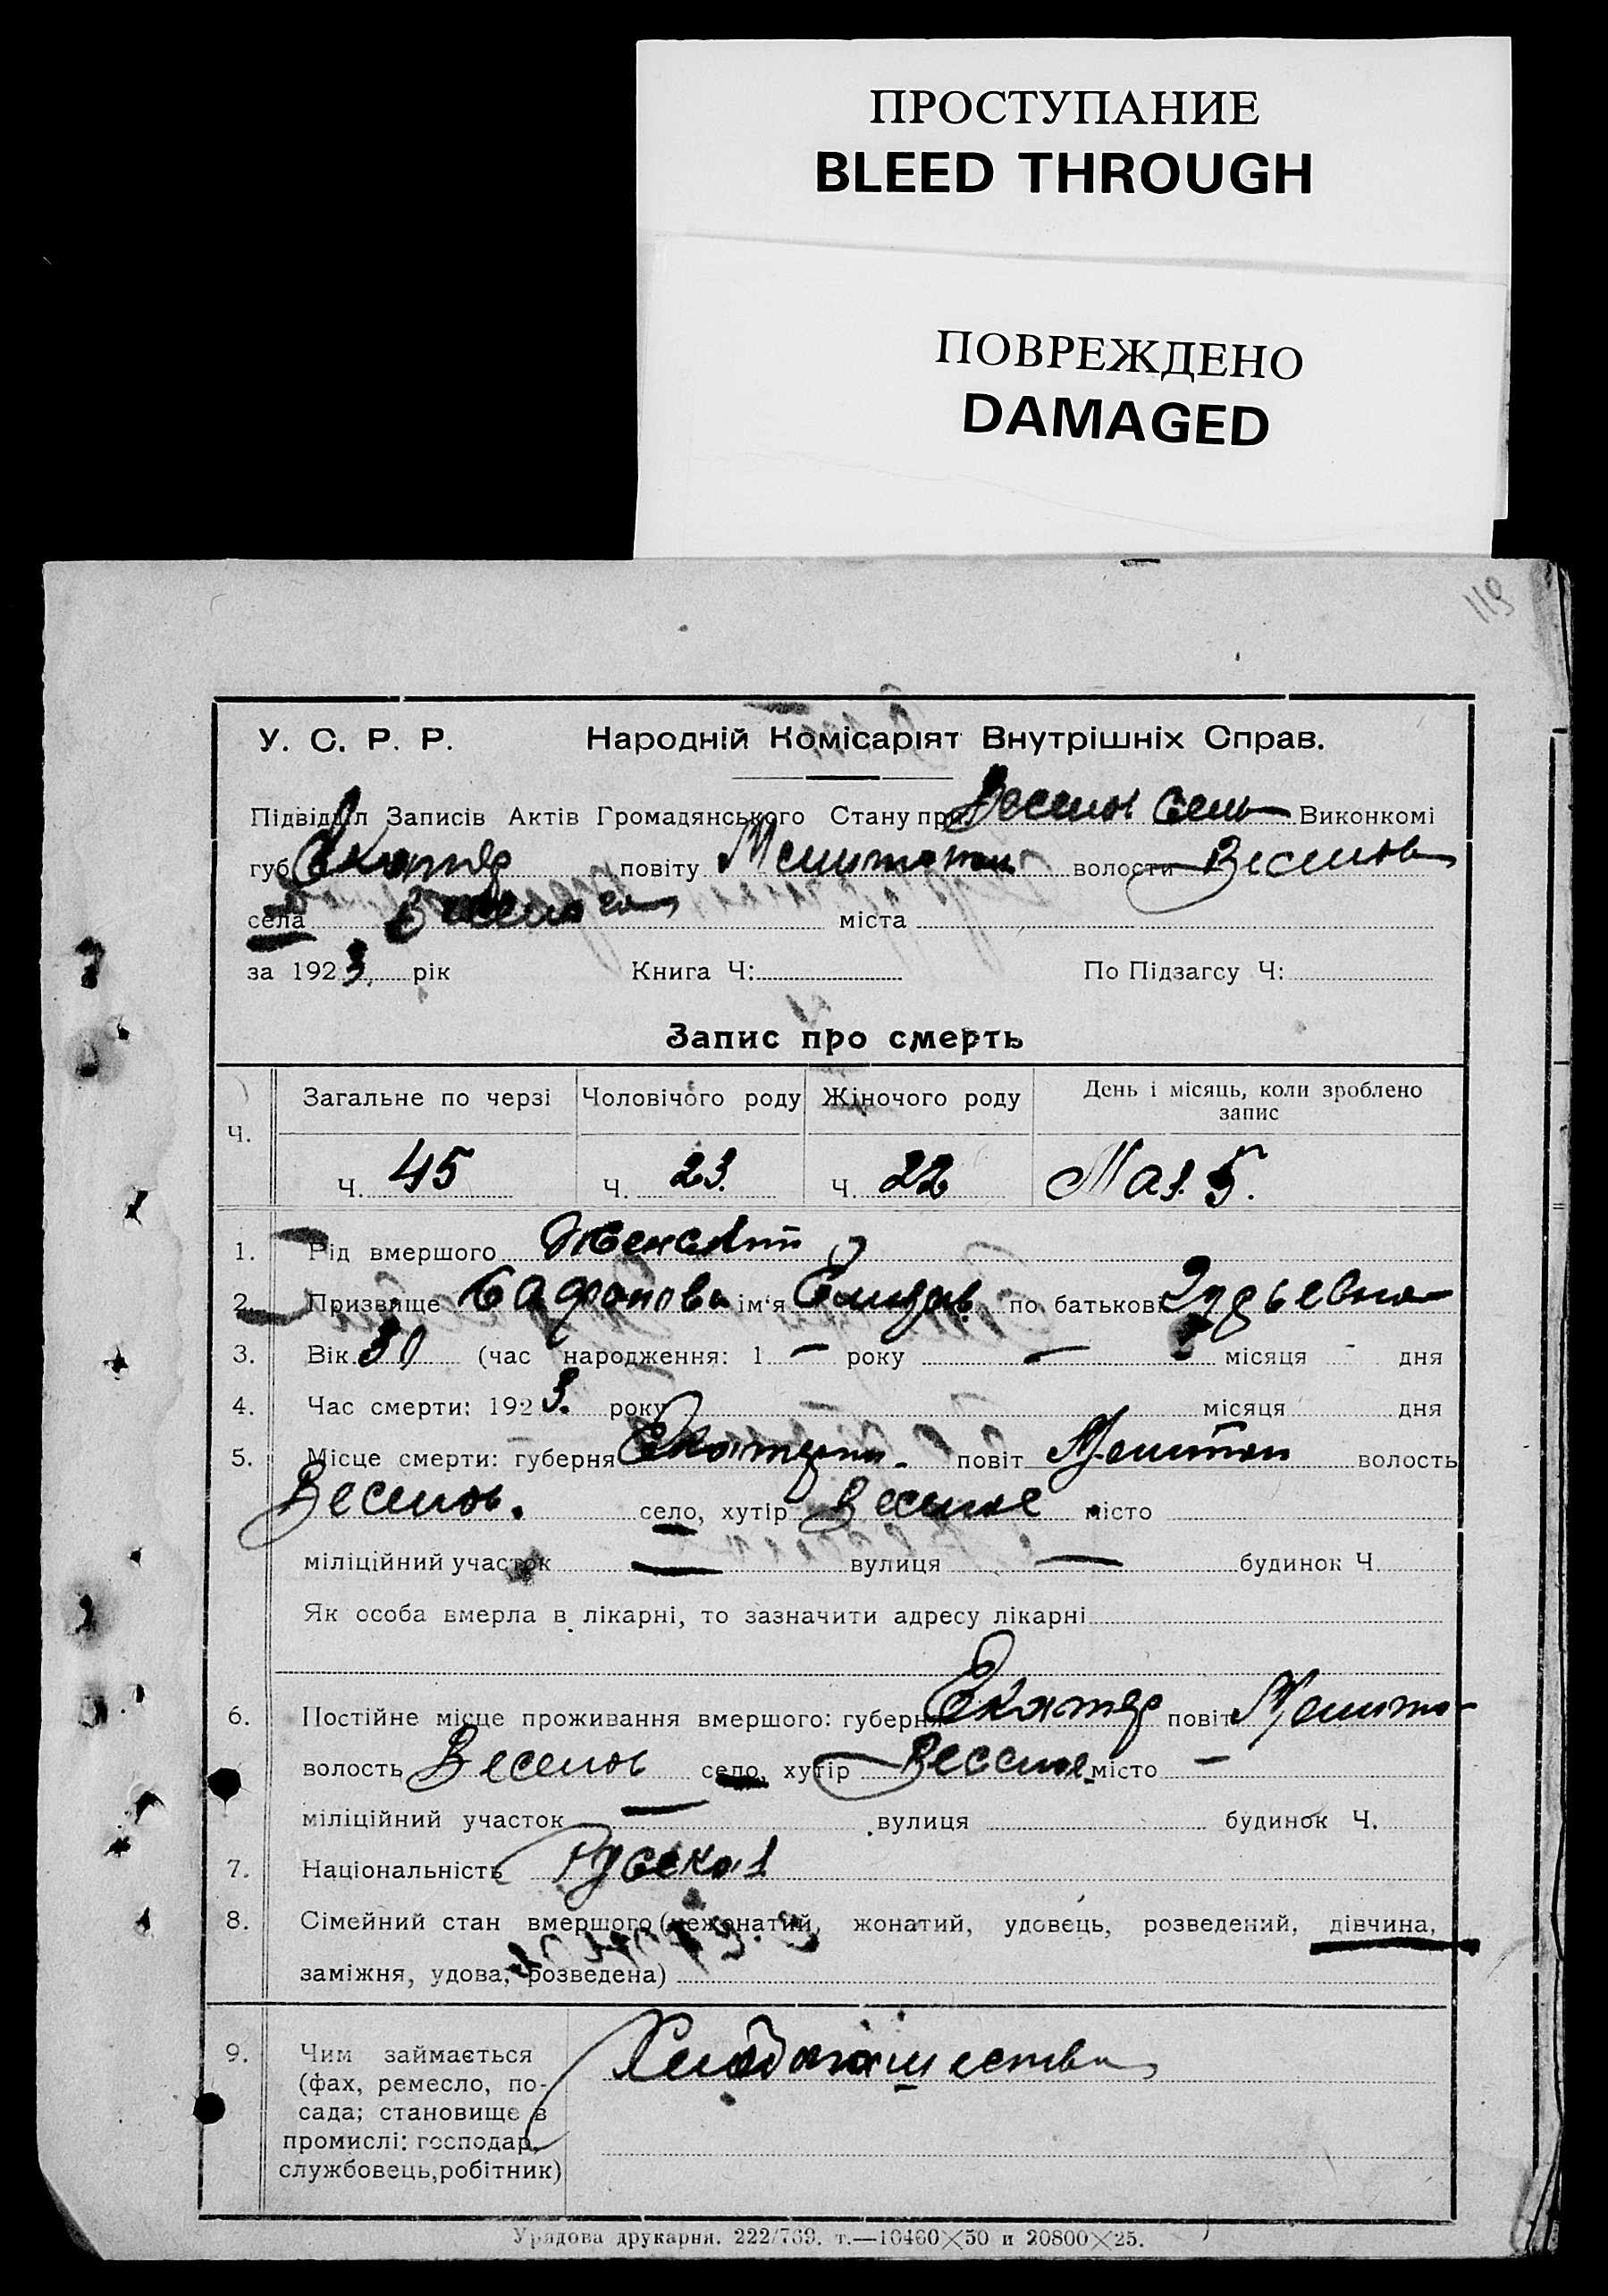 ПРОСТУПАНИЕ
BLEED THROUGH
ПОВРЕЖДЕНО
DAMAGED
119
У. С. Р. Р. Народній Комісаріят Внутрішніх Справ.
Підвідділ Записів Актів Громадянського Стану при Веселов Сель Виконкомі
губ Екатер повіту Мелитопол волости Веселов
села Веселого міста
за 1923 рік Книга Ч: По Підзагсу Ч:
Запис про смерть
Ч. Загальне по черзі Чоловічого роду Жіночого роду День і місяць, коли зроблено запис
Ч. 45 Ч. 23. Ч. 22 Мая 5.
1. Рід вмершого Женский
2. Призвище Сафонова ім'я Елизав. по батькові
3. Вік 30 (час народження: 1 — року — місяця - дня
4. Час смерти: 1923. року місяця дня
5. Місце смерти: губерня Екатерин. повіт Мелитоп волость
Веселов. село, хутір Веселое місто
міліційний участок — вулиця — будинок Ч.
Як особа вмерла в лікарні, то зазначити адресу лікарні
6. Постійне місце проживання вмершого: губерня Екатер повіт Мелито-
волость Веселов село, хутір Веселое місто —
міліційний участок — вулиця будинок Ч.
7. Національність Руская
8. Сімейний стан вмершого (нежонатий, жонатий, удовець, розведений, дівчина,
заміжня, удова, розведена)
9. Чим займається Хлебопашество
(фах, ремесло, по-
сада; становище в
промислі: господар,
службовець, робітник)
Урядова друкарня. 222/769. т.—10400×50 и 20800×25.